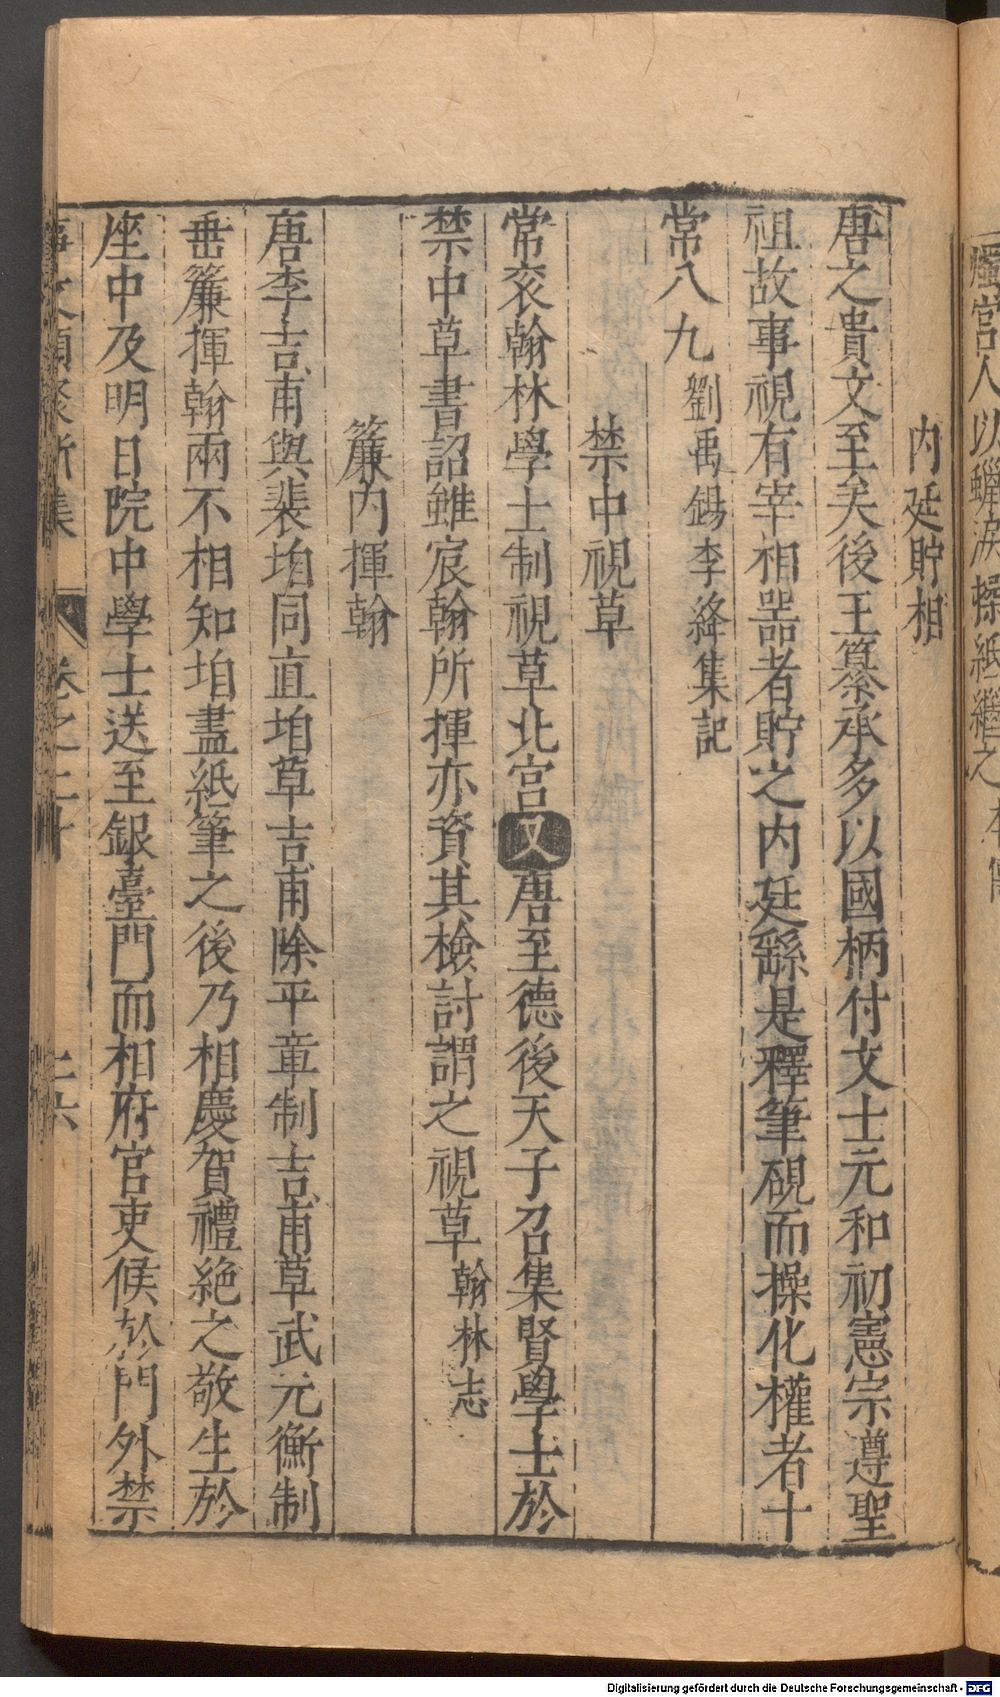 燭宫人以蠟淚操紙繼之
内廷貯相
唐之貴文至矣後王纂承多以國柄付文士元和初憲宗遵聖
祖故事視有宰相噐者貯之内廷繇是釋筆硯而操化權者十
常八九劉禹錫李絳集記
禁中視草
常衮翰林學士制視草北宫又唐至德後天子召集賢學士於
禁中草書詔雖宸翰所揮亦資其檢討謂之視草翰林志
簾内揮翰
唐李吉甫與裴垍同直垍草吉甫除平章制吉甫草武元衡制
垂簾揮翰兩不相知垍盡紙筆之後乃相慶賀禮絶之敬生於
座中及明日院中學士送至銀臺門而相府官吏候於門外禁
事文類聚新集 卷之二十 二六
Digitalisierung gefördert durch die Deutsche Forschungsgemeinschaft - DFG